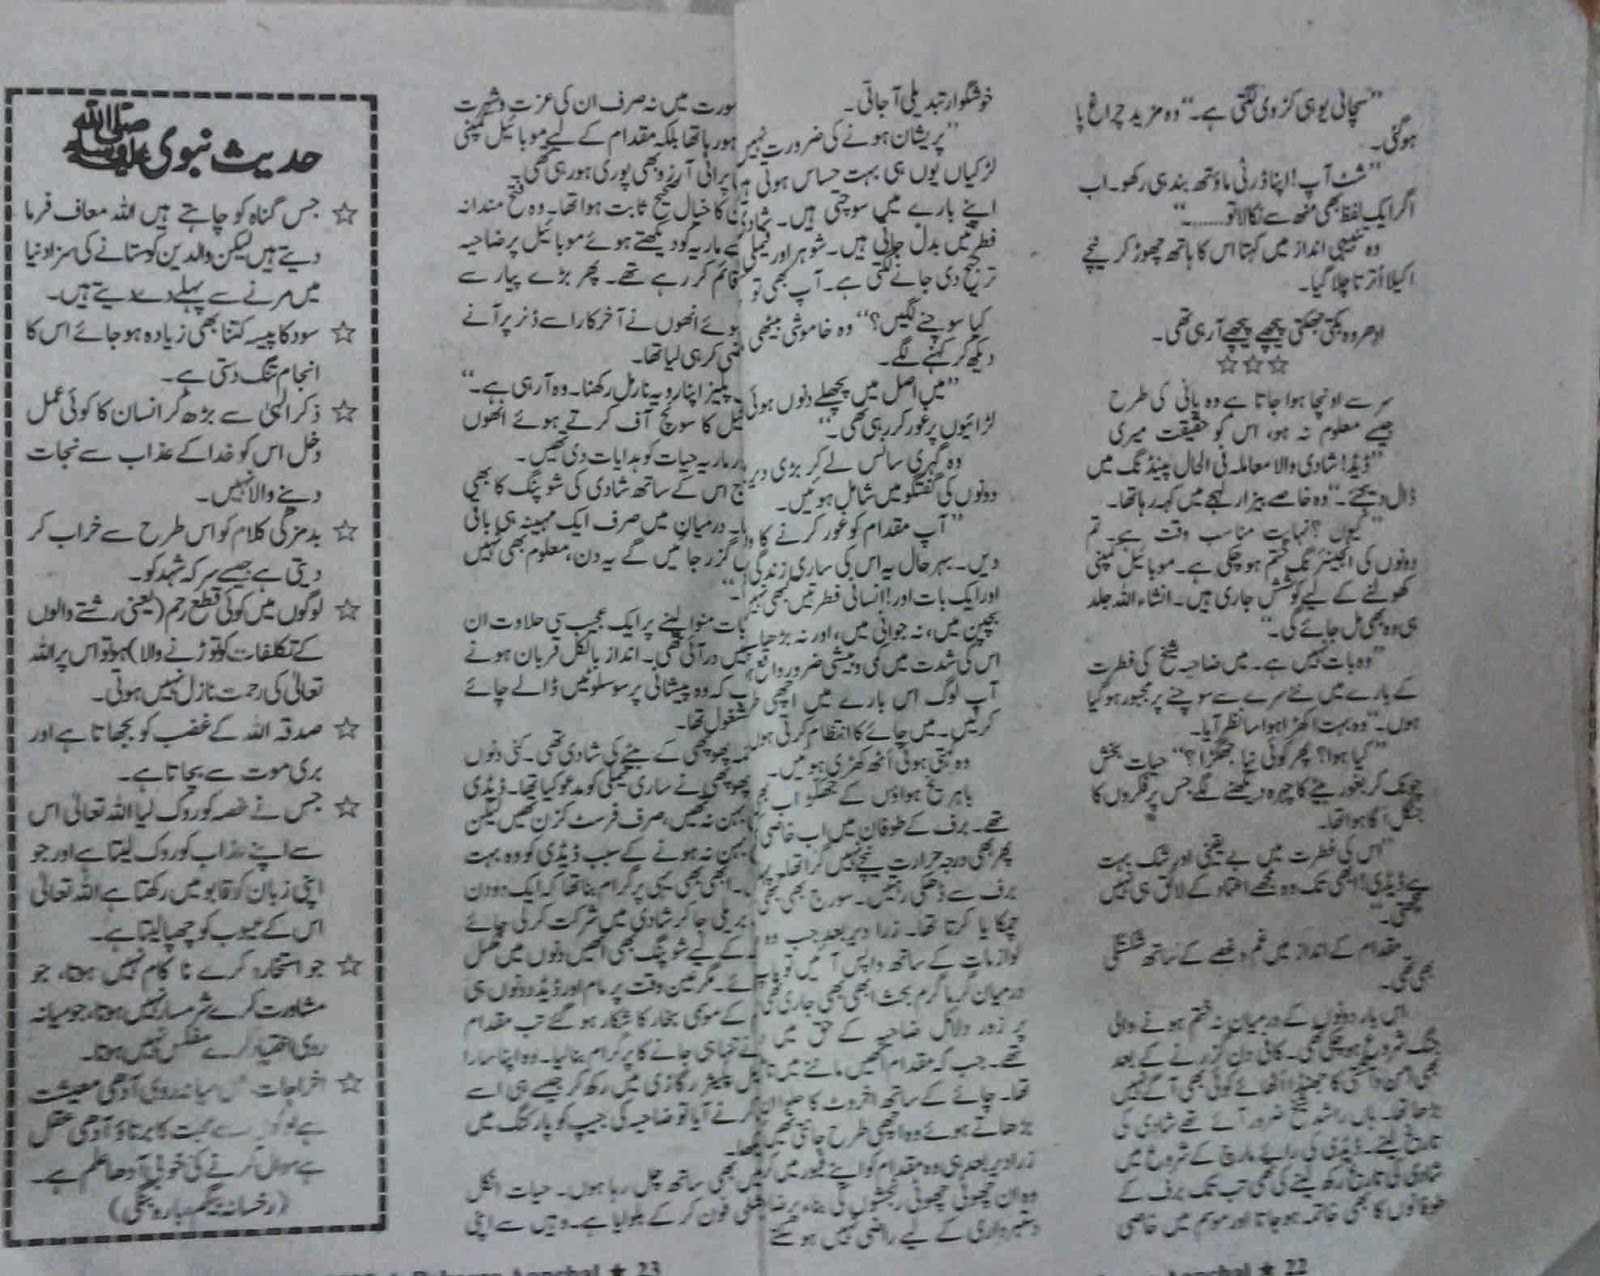 ”سچائی یوں ہی کڑوی لگتی ہے۔“ وہ مزید چراغ پا
ہوگئی۔
”شٹ آپ! اپنا ڈرٹی ماؤتھ بند ہی رکھو۔ اب
اگر ایک لفظ بھی منھ سے نکالا تو.......“
وہ تنبیہی انداز میں کہتا اس کا ہاتھ چھوڑ کر نیچے
اکیلا اُترتا چلا گیا۔
ادھر وہ بکتی جھکتی پیچھے پیچھے آرہی تھی۔
☆☆☆
سر سے اونچا ہوا جاتا ہے وہ پانی کی طرح
جیسے معلوم نہ ہو، اس کو حقیقت میری
”ڈیڈ! شادی والا معاملہ فی الحال پینڈنگ میں
ڈال دیجئے۔“ وہ خاصے بیزار لہجے میں کہہ رہا تھا۔
”کیوں؟ نہایت مناسب وقت ہے۔ تم
دونوں کی انجینئرنگ ختم ہوچکی ہے۔ موبائیل کمپنی
کھولنے کے لیے کوشش جاری ہیں۔ انشاء اللہ جلد
ہی وہ بھی مل جائے گی۔“
”وہ بات نہیں ہے۔ میں ضاحیہ شیخ کی فطرت
کے بارے میں نئے سرے سے سوچنے پر مجبور ہوگیا
ہوں۔“ وہ بہت اکھڑا ہوا سا نظر آیا۔
”کیا ہوا؟ پھر کوئی نیا جھگڑا؟“ حیات بخش
چونک کر بغور بیٹے کا چہرہ دیکھنے لگے جس پر فکروں کا
جنگل اُگا ہوا تھا۔
”اس کی فطرت میں بے یقینی اور شک بہت
ہے ڈیڈی! ابھی تک وہ مجھے اعتماد کے لائق ہی نہیں
سمجھتی۔“
مقدام کے انداز میں غم و غصے کے ساتھ شکستگی
بھی تھی۔
اس بار دونوں کے درمیان نہ ختم ہونے والی
جنگ شروع ہوچکی تھی۔ کافی دن گزرنے کے بعد
بھی امن و آشتی کا جھنڈا اُٹھائے کوئی بھی آگے نہیں
بڑھا تھا۔ ہاں راشد شیخ ضرور آئے تھے شادی کی
تاریخ لینے۔ ڈیڈی کی رائے مارچ کے شروع میں
شادی کی تاریخ رکھ لینے کی تھی تب تک برف کے
طوفانوں کا بھی خاتمہ ہوجاتا اور موسم میں خاصی
خوشگوار تبدیلی آجاتی۔
”پریشان ہونے کی ضرورت نہیں
لڑکیاں یوں ہی بہت حساس ہوتی
اپنے بارے میں سوچتی ہیں۔ شادی
فطرتیں بدل جاتی ہیں۔ شوہر اور فیملی
ترجیح دی جانے لگتی ہے۔ آپ بھی تو
کیا سوچنے لگیں؟“ وہ خاموشی بیٹھی
دیکھ کر کہنے لگے۔
”میں اصل میں پچھلے دنوں ہوئی
لڑائیوں پر غور کر رہی تھی۔“
وہ گہری سانس لے کر بڑی دیر
دونوں کی گفتگو میں شامل ہوئیں۔
”آپ مقدام کو غور کرنے کا
دیں۔ بہرحال یہ اس کی ساری زندگی
اور ایک بات اور! انسانی فطرتیں کبھی نہیں
بچپن میں، نہ جوانی میں، اور نہ بڑھاپے
اس کی شدت میں کمی و بیشی ضرور واقع
آپ لوگ اس بارے میں اچھی
کرلیں۔ میں چائے کا انتظام کرتی ہوں
وہ کہتی ہوئی اُٹھ کھڑی ہوئیں۔
باہر یخ ہواؤں کے جھکڑ اب
تھے۔ برف کے طوفان میں اب خاصی
پھر بھی درجہ حرارت نیچے نہیں گرا تھا۔
برف سے ڈھکی رہتیں۔ سورج بھی کبھی
چمکا یا کرتا تھا۔ ذرا دیر بعد جب وہ
لوازمات کے ساتھ واپس آئیں تو باپ
درمیان گرما گرم بحث ابھی بھی جاری تھی
پر زور دلائل ضاحیہ کے حق میں
تھے۔ جب کہ مقدام انھیں ماننے میں
تھا۔ چائے کے ساتھ اخروٹ کا حلوہ
بڑھاتے ہوئے وہ اچھی طرح جانتی تھیں
ذرا دیر بعد ہی وہ مقدام کو اپنے فیور میں
وہ ان چھوٹی چھوٹی رنجشوں کی بناء پر
دستبرداری کے لیے راضی نہیں ہوسکتے
صورت میں نہ صرف ان کی عزت و شہرت
ہو رہا تھا بلکہ مقدام کے لیے موبائیل کمپنی
پرانی آرزو بھی پوری ہو رہی تھی۔
کا خیال صحیح ثابت ہوا تھا۔ وہ فتح مندانہ
ماریہ کو دیکھتے ہوئے موبائیل پر ضاحیہ
قائم کر رہے تھے۔ پھر بڑے پیار سے
ہوئے انھوں نے آخرکار اسے ڈنر پر آنے
راضی کر ہی لیا تھا۔
پلیز اپنا رویہ نارمل رکھنا۔ وہ آرہی ہے۔“
کا سوئچ آف کرتے ہوئے انھوں
ماریہ حیات کو ہدایات دی تھیں۔
اس کے ساتھ شادی کی شوپنگ کا بھی
درمیان میں صرف ایک مہینہ ہی باقی
گزر جائیں گے یہ دن، معلوم بھی نہیں
بات منوا لینے پر ایک عجیب سی حلاوت ان
میں در آئی تھی۔ انداز بالکل قربان ہونے
کہ وہ پیشانی پر سو سلوٹیں ڈالے چائے
مشغول تھا۔
پھوپھی کے بیٹے کی شادی تھی۔ کئی دنوں
پھوپھی نے ساری فیملی کو مدعو کیا تھا۔ ڈیڈی
بہن نہ تھیں، صرف فرسٹ کزن تھیں لیکن
بہن نہ ہونے کے سبب ڈیڈی کو وہ بہت
ابھی بھی یہی پرگرام بنا تھا کہ ایک دو دن
بریلی جا کر شادی میں شرکت کرلی جائے
کے لیے شوپنگ بھی انھیں دنوں میں مکمل
مگر عین وقت پر مام اور ڈیڈ دونوں ہی
کے موسمی بخار کا شکار ہوگئے تب مقدام
نے تنہا ہی جانے کا پرگرام بنالیا۔ وہ اپنا سارا
گاڑی میں رکھ کر جیسے ہی اسے
کرنے آیا تو ضاحیہ کی جیپ کو پارکنگ میں
دیکھا۔
میں بھی ساتھ چل رہا ہوں۔ حیات انکل
فون کر کے بلوایا ہے۔ وہیں سے اپنی
حدیث نبوی صلی اللہ علیہ وسلم
☆ جس گناہ کو چاہتے ہیں اللہ معاف فرما
دیتے ہیں لیکن والدین کو ستانے کی سزا دنیا
میں مرنے سے پہلے دے دیتے ہیں۔
☆ سود کا پیسہ کتنا بھی زیادہ ہوجائے اس کا
انجام تنگ دستی ہے۔
☆ ذکر الٰہی سے بڑھ کر انسان کا کوئی عمل
دخل اس کو خدا کے عذاب سے نجات
دینے والا نہیں۔
☆ بدمزگی کلام کو اس طرح سے خراب کر
دیتی ہے جیسے سرکہ شہد کو۔
☆ لوگوں میں کوئی قطع رحم (یعنی رشتے والوں
کے تکلفات کو توڑنے والا) ہو تو اس پر اللہ
تعالیٰ کی رحمت نازل نہیں ہوتی۔
☆ صدقہ اللہ کے غضب کو بجھاتا ہے اور
بری موت سے بچاتا ہے۔
☆ جس نے غصہ کو روک لیا اللہ تعالیٰ اس
سے اپنے عذاب کو روک لیتا ہے اور جو
اپنی زبان کو قابو میں رکھتا ہے اللہ تعالیٰ
اس کے عیوب کو چھپا لیتا ہے۔
☆ جو استخارہ کرے ناکام نہیں ہوتا، جو
مشاورت کرے شرمسار نہیں ہوتا، جو میانہ
روی اختیار کرے مفلس نہیں ہوتا۔
☆ اخراجات میں میانہ روی آدھی معیشت
ہے لوگوں سے محبت کا برتاؤ آدھی عقل
ہے سوال کرنے کی خوبی آدھا علم ہے۔
(رخسانہ بیگم، بارہ بنکی)
Aanchal ★ 23
Aanchal ★ 22